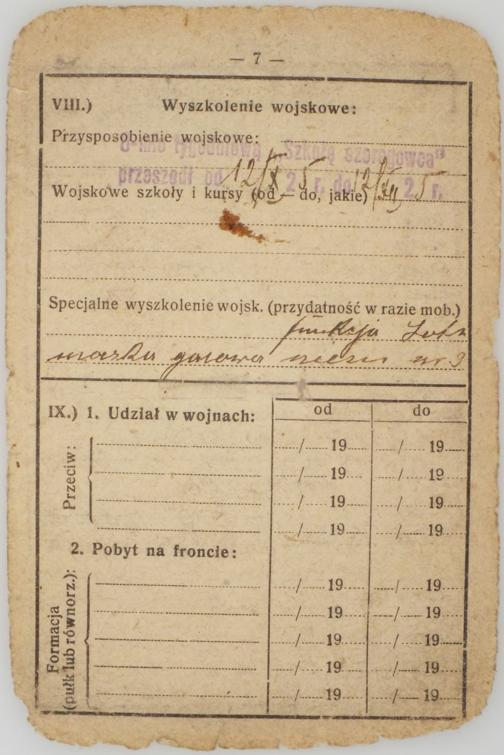 — 7 —
VIII.) Wyszkolenie wojskowe:
Przysposobienie wojskowe:
tygodniową „Szkołę szeregowca"
przeszedł od 12/X 25 r. do 12/XII 25 r.
Wojskowe szkoły i kursy (od — do, jakie)
Specjalne wyszkolenie wojsk. (przydatność w razie mob.)
funkcja
maska gazowa
IX.) 1. Udział w wojnach:
od do
Przeciw:
/ 19 / 19
/ 19 / 19
/ 19 / 19
/ 19 / 19
2. Pobyt na froncie:
Formacja
(pułk lub równorz.):
/ 19 / 19
/ 19 / 19
/ 19 / 19
/ 19 / 19
/ 19 / 19